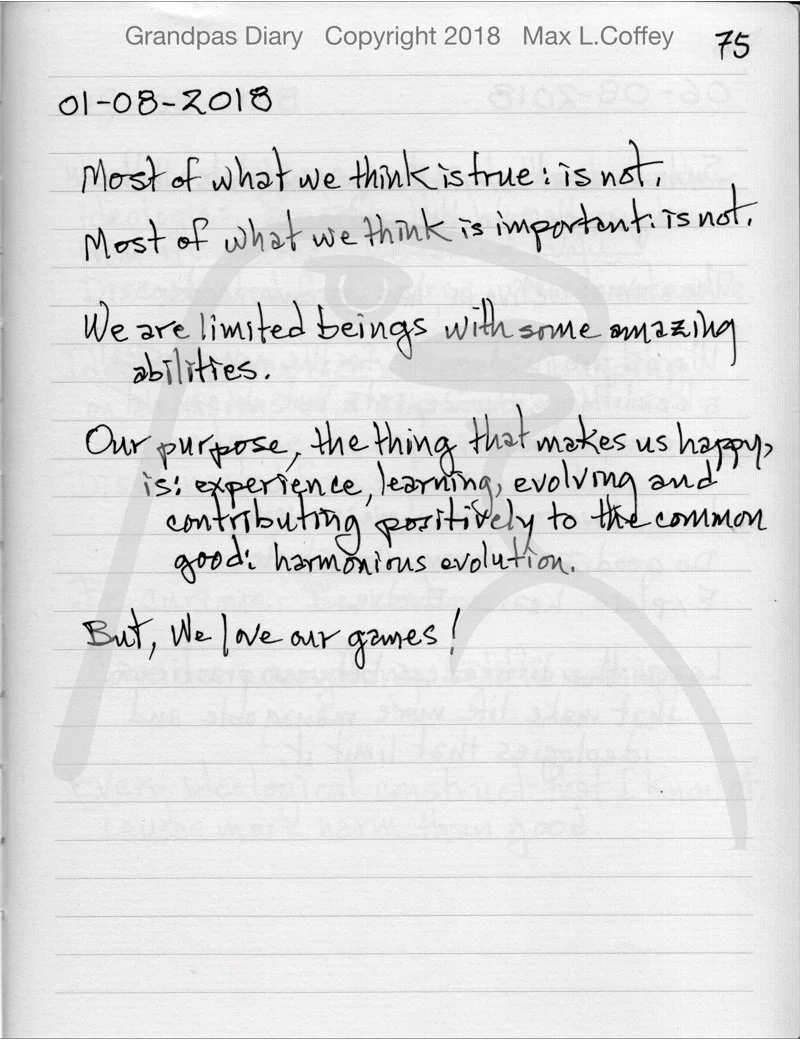 Grandpas Diary Copyright 2018 Max L.Coffey
75
01-08-2018
Most of what we think is true: is not.
Most of what we think is important: is not.
We are limited beings with some amazing
abilities.
Our purpose, the thing that makes us happy,
is: experience, learning, evolving and
contributing positively to the common
good: harmonious evolution.
But, We love our games!